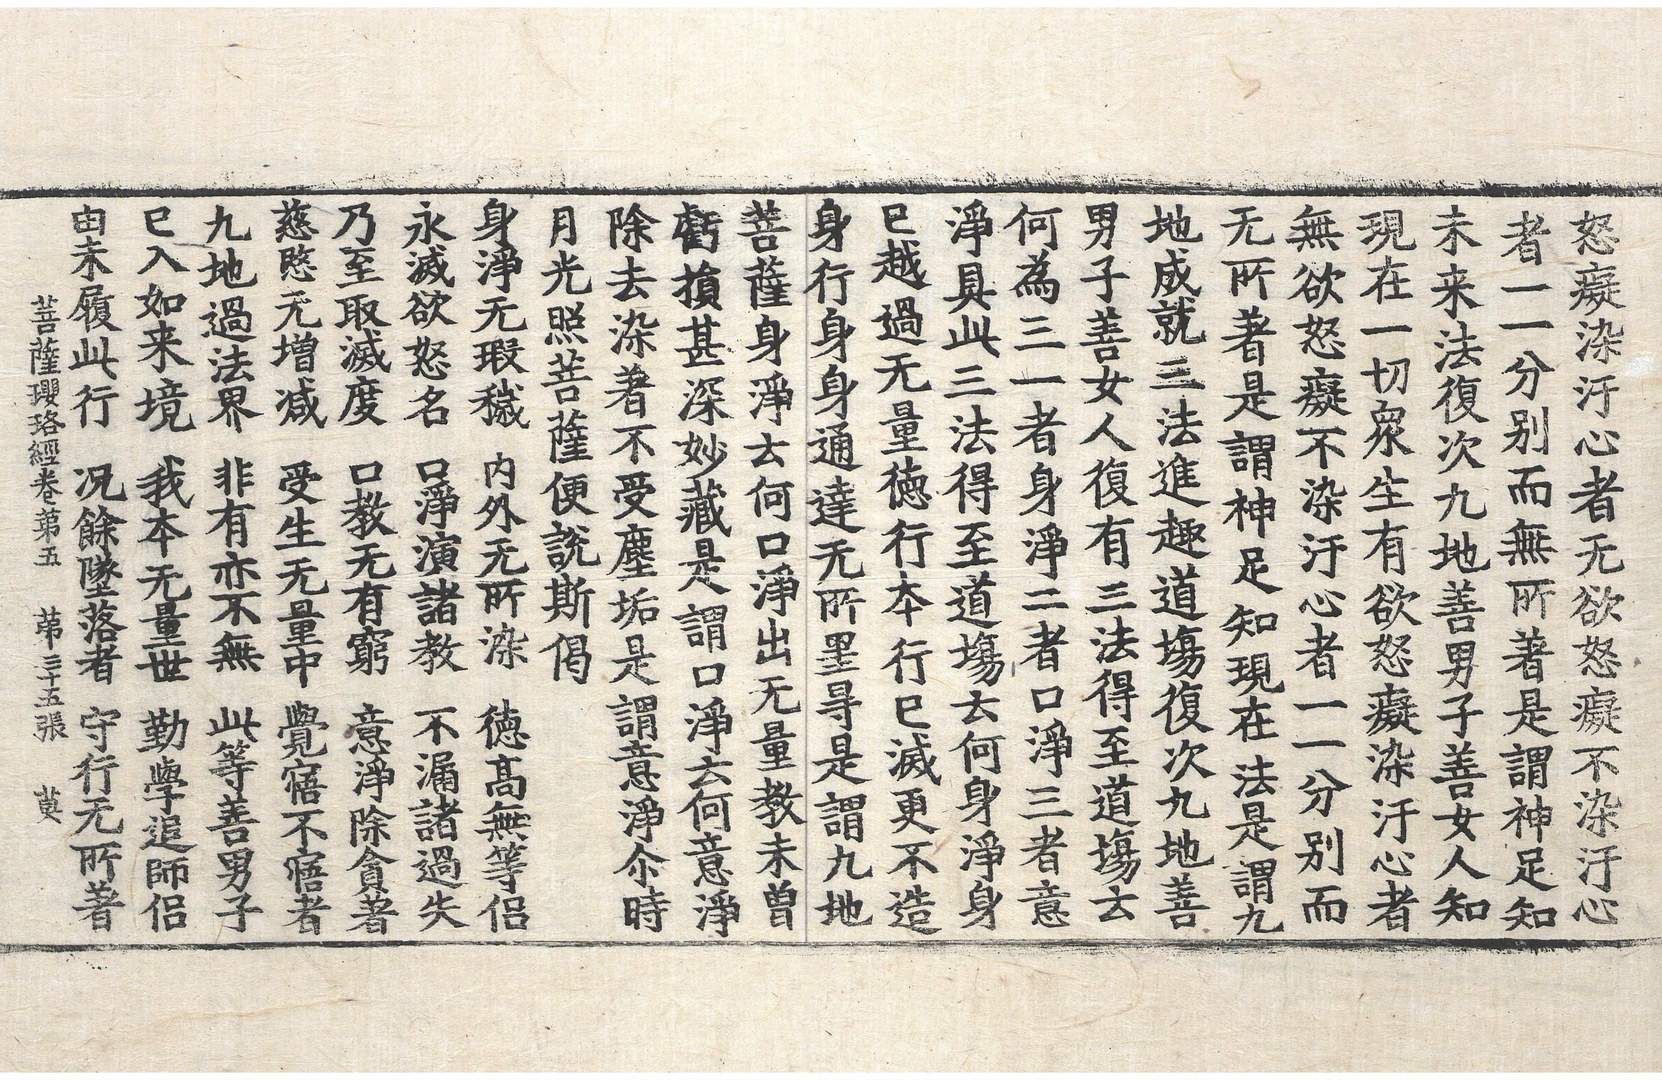 怒癡染汙心者无欲怒癡不染汙心
者一一分別而無所著是謂神足知
未来法復次九地善男子善女人知
現在一切衆生有欲怒癡染汙心者
無欲怒癡不染汙心者一一分別而
无所著是謂神足知現在法是謂九
地成就三法進趣道場復次九地善
男子善女人復有三法得至道場云
何為三一者身淨二者口淨三者意
淨具此三法得至道場云何身淨身
已越過无量德行本行已滅更不造
身行身身通達无所罣㝵是謂九地
菩薩身淨云何口淨出无量教未曾
虧損甚深妙藏是謂口淨云何意淨
除去染著不受塵垢是謂意淨尒時
月光照菩薩便說斯偈
身淨无瑕穢　内外无所染　德高無等侶
永滅欲怒名　口淨演諸教　不漏諸過失
乃至取滅度　口教无有窮　意淨除貪著
慈愍无增減　受生无量中　覺寤不寤者
九地過法界　非有亦不無　此等善男子
已入如来境　我本无量世　勤學追師侶
由未履此行　况餘墜落者　守行无所著
菩薩瓔珞經卷第五　第三十五張